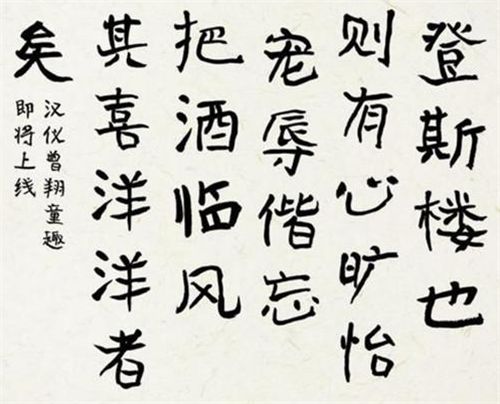 登斯楼也
则有心旷怡
宠辱偕忘
把酒临风
其喜洋洋者
矣
汉仪曾翔童趣
即将上线